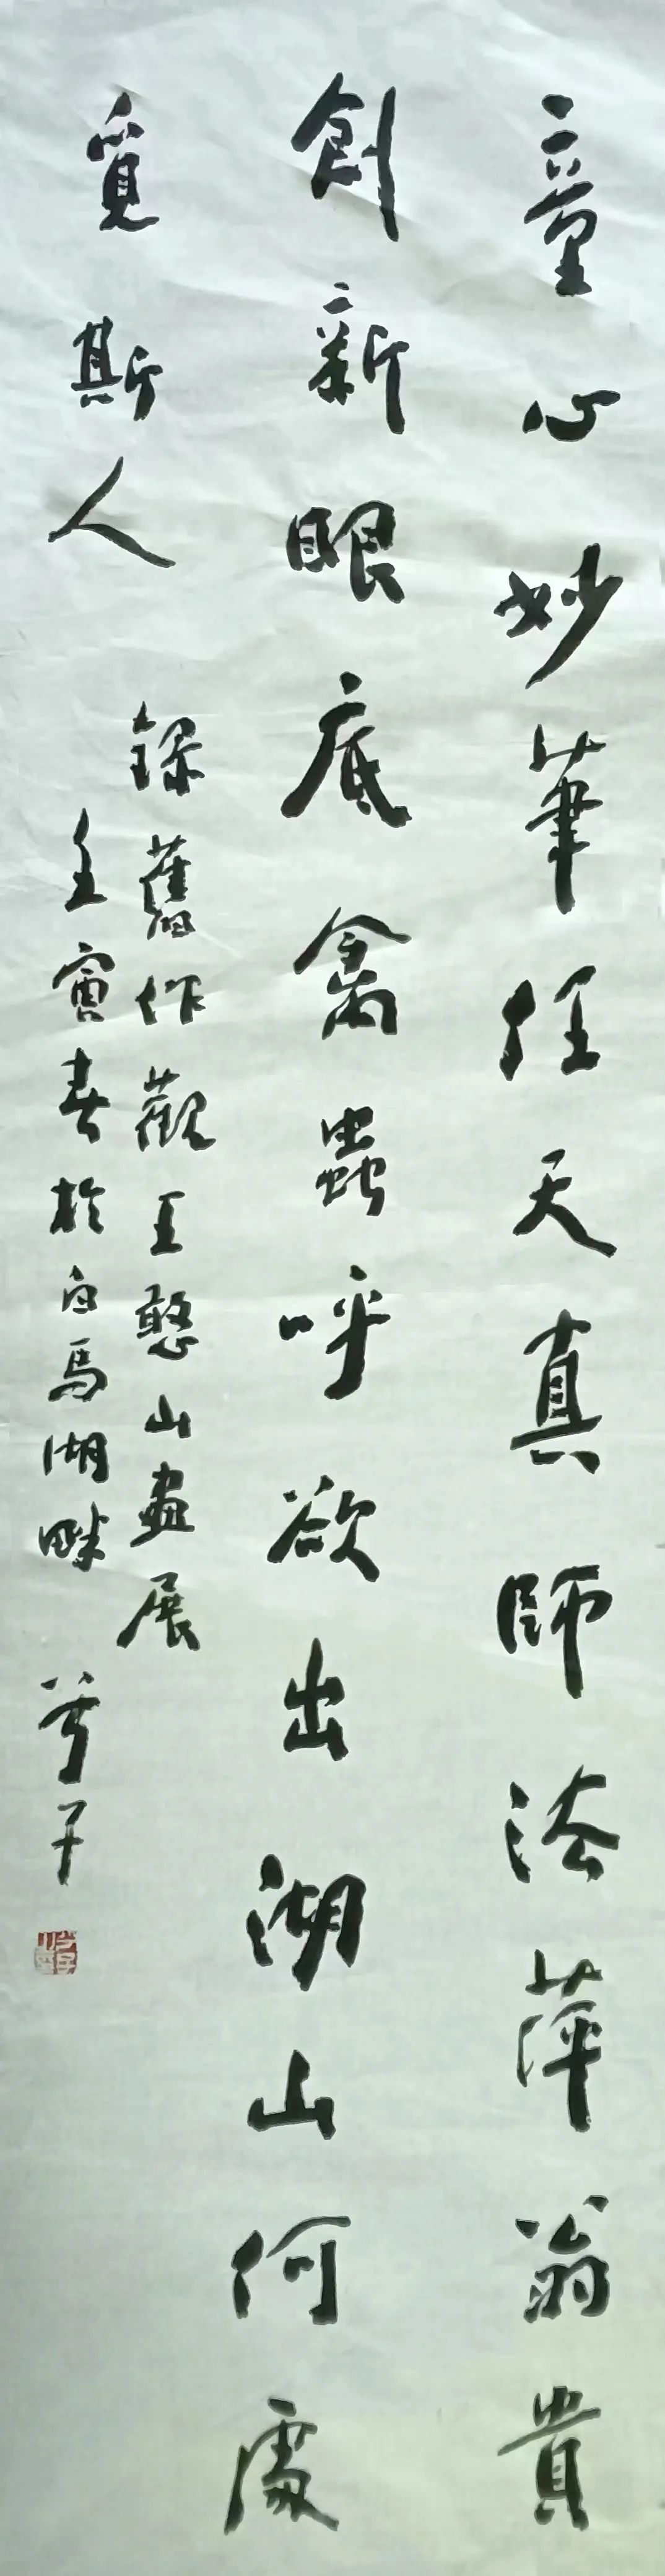 童心妙筆任天真師法萍翁貴
創新眼底禽蟲呼欲出湖山何處
覓斯人
録舊作觀王憨山畫展
壬寅春於白馬湖畔